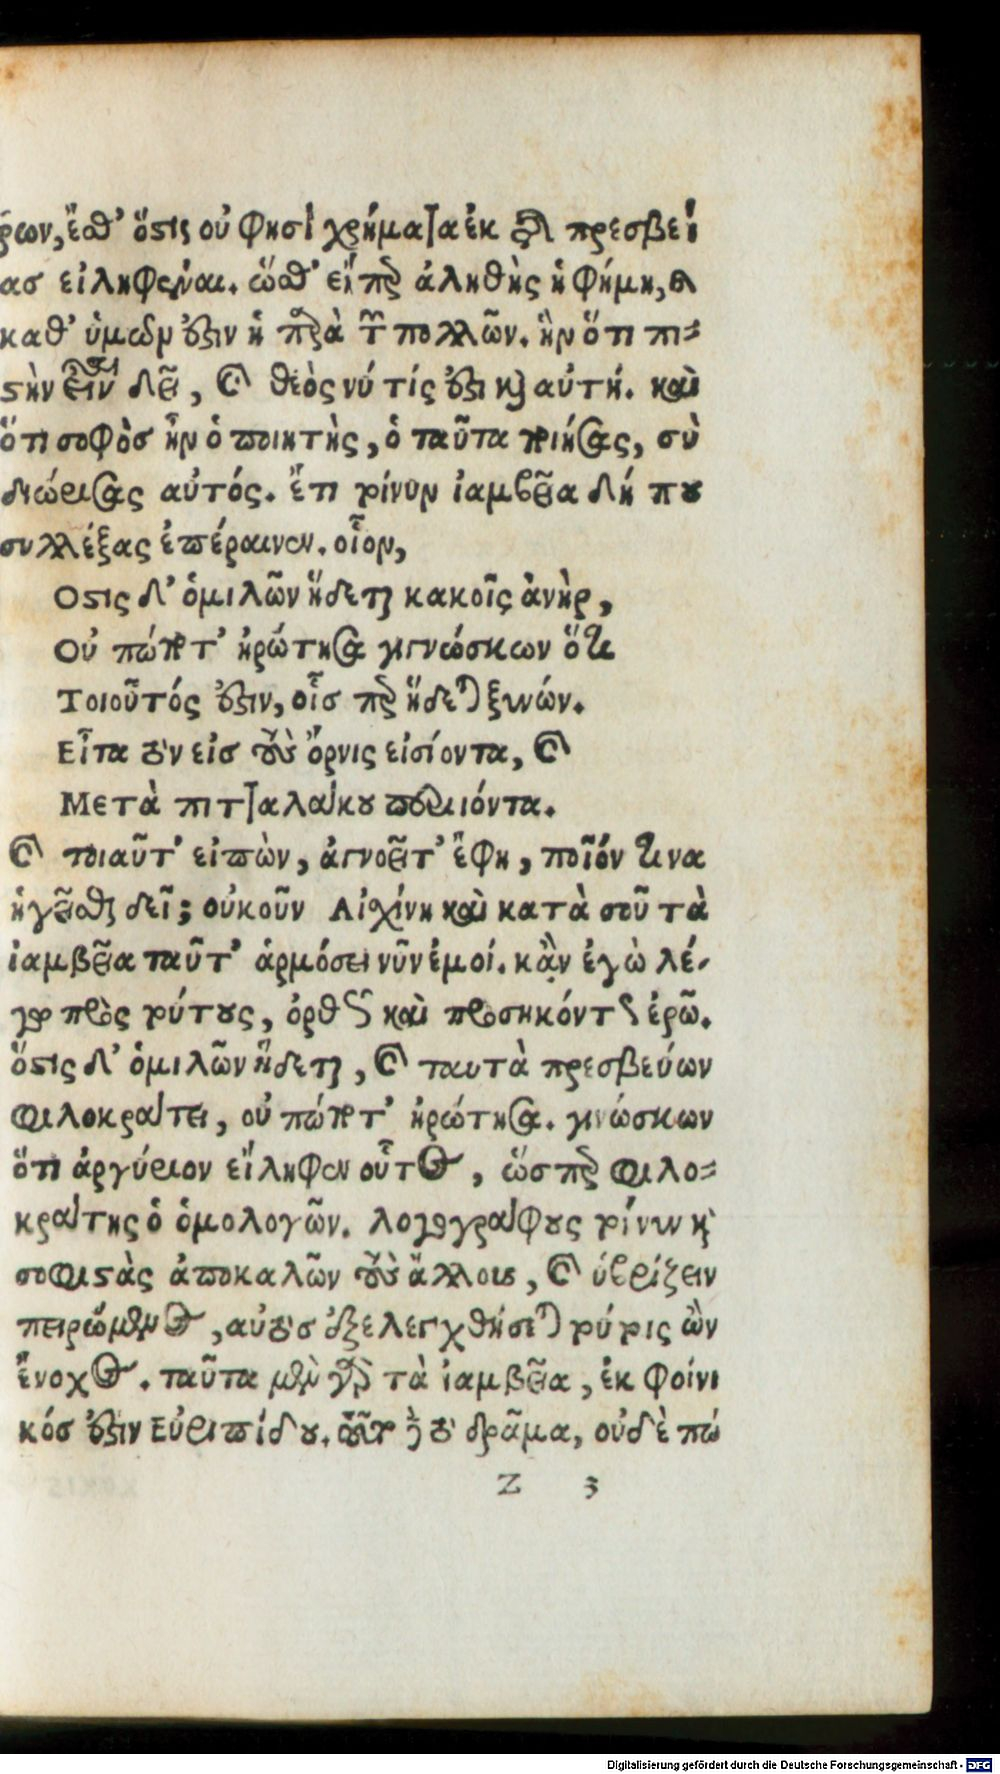 ρων, ἔσθ' ὅστις οὐ φησὶ χρήματα ἐκ τῆς πρεσβεί
ας εἰληφέναι. ὥσθ' εἴπερ ἀληθὴς ἡ φήμη, ἡ
καθ' ὑμῶν ἐστιν ἡ παρὰ τῶν πολλῶν. ἣν ὅτι πι-
στὴν εἶναι δεῖ, καὶ θεὸς νύ τίς ἐστι καὶ αὐτή. καὶ
ὅτι σοφὸς ἦν ὁ ποιητὴς, ὁ ταῦτα ποιήσας, σὺ
διώρισας αὐτός. ἔτι τοίνυν ἰαμβεῖα δή που
συλλέξας ἐπέραινεν. οἷον,
Οστις δ' ὁμιλῶν ἥδεται κακοῖς ἀνὴρ,
Οὐ πώποτ' ἠρώτησα γιγνώσκων ὅτι
Τοιοῦτός ἐστιν, οἷς περ ἥδεται ξυνών.
Εἶτα τὸν εἰς τοὺς ὄρνις εἰσίοντα, καὶ
Μετὰ πιτταλάκου περιιόντα.
καὶ τοιαῦτ' εἰπὼν, ἀγνοεῖτ' ἔφη, ποῖόν τινα
ἡγεῖσθαι δεῖ; οὐκοῦν Αἰσχίνη καὶ κατὰ σοῦ τὰ
ἰαμβεῖα ταῦτ' ἁρμόσει νῦν ἐμοί. κἂν ἐγὼ λέ-
γω πρὸς τούτους, ὀρθῶς καὶ προσηκόντως ἐρῶ.
ὅστις δ' ὁμιλῶν ἥδεται, καὶ ταυτὰ πρεσβεύων
φιλοκράτει, οὐ πώποτ' ἠρώτησα. γινώσκων
ὅτι ἀργύριον εἴληφεν οὗτος, ὥσπερ φιλο-
κράτης ὁ ὁμολογῶν. λογογράφους τοίνυν καὶ
σοφιστὰς ἀποκαλῶν τοὺς ἄλλους, καὶ ὑβρίζειν
πειρώμενος, αὐτὸς ἐξελεγχθήσεται τούτοις ὢν
ἔνοχος. ταῦτα μὲν γὰρ τὰ ἰαμβεῖα, ἐκ φοίνι
κός ἐστιν Εὐριπίδου. τοῦτο δὲ τὸ δρᾶμα, οὐδὲ πώ
Z 3
Digitalisierung gefördert durch die Deutsche Forschungsgemeinschaft - DFG